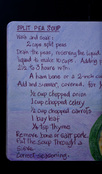 SPLIT PEA SOUP
Wash and soak:
2 cups split peas
Drain the peas, reserving the liquid
liquid to make 10 cups. Adding
2½ to 3 hours with:
A ham bone or a 2-inch
Add and simmer, covered, for
½ cup chopped onion
1 cup chopped celery
½ cup chopped carrots
1 bay leaf
¼ tsp thyme
Remove bone or salt pork
Put the soup through a
sieve
Correct seasoning.